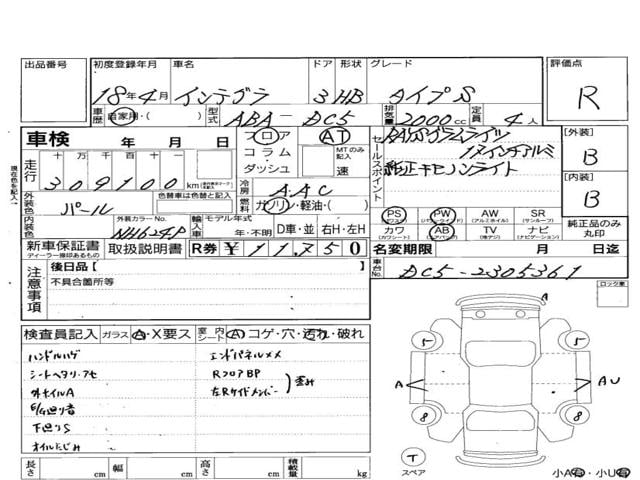 出品番号
初度登録年月 車名 ドア 形状 グレード 評価点
18年4月 インテグラ 3 HB タイプS R
車歴 自家用・( ) 型式 ABA-DC5 排気量 2000cc 定員 4人
車検 年 月 日
フロア AT
コラム・
ダッシュ
MTのみ記入
速
セールスポイント
17インチアルミ
純正キセノンライト
[外装]
B
[内装]
B
走行 十 万 千 百 十
309100 km
冷房 AAC
外装色 パール 色替車は色替と記入
燃料 ガソリン・軽油・( )
内装色 外装カラーNo. NH624P
輸入車 モデル年式 年・不明 D車・並 右H・左H
PS PW AW SR
カワ AB TV ナビ
純正品のみ丸印
新車保証書 取扱説明書 R券 ¥11,750
ディーラー捺印あるもの
名変期限 月 日迄
車台No. DC5-2305361
現在色を記入
注意事項
後日品[ ]
不具合箇所等
ロック車
検査員記入 ガラス A・X要ス 室内シート A コゲ・穴・汚れ・破れ
ハンドルハゲ エンドパネルメメ
シートヘタリ・アセ RフロアBP
外ホイルA 左Rサイドメンバー 歪み
下廻りS
オイルにじみ
長さ cm 幅 cm 高さ cm 積載量 kg
A
5 5
A A U
8 8
T
スペア
小A有・小U有